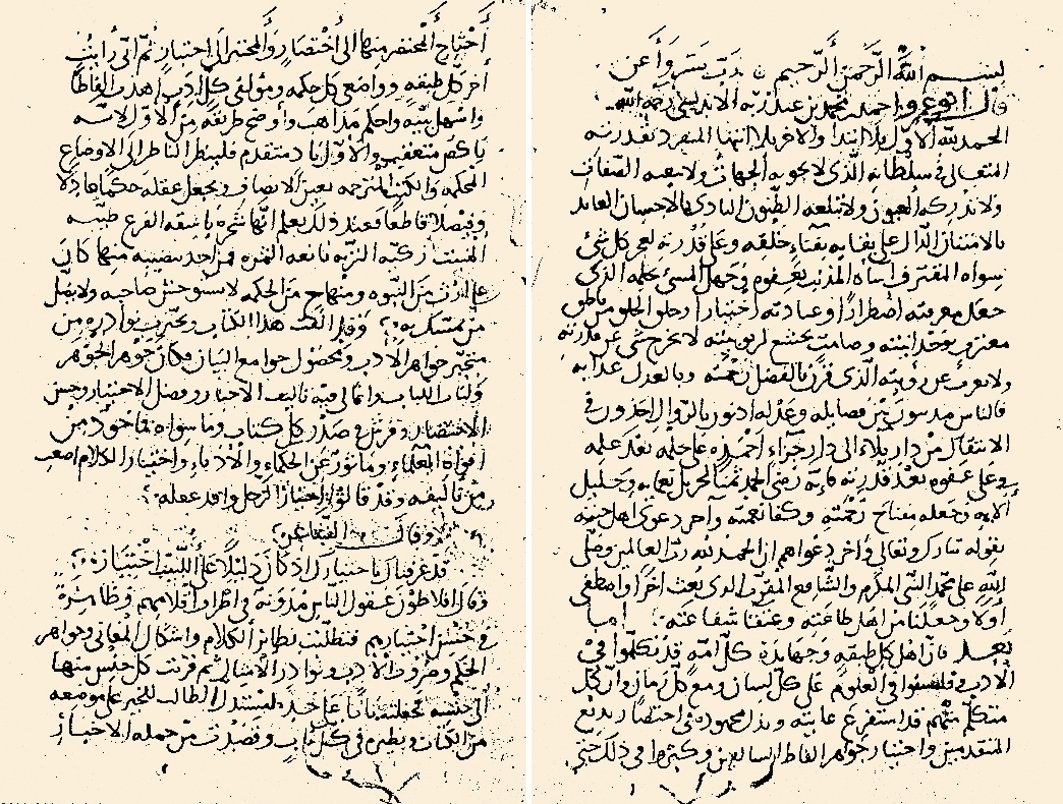 بسم الله الرحمن الرحيم رب يسر وأعن
قال ابو عمرو احمد بن محمد بن عبد ربه الاندلسي رحمه الله
الحمد لله الاول بلا ابتدا والاخر بلا انتها المنفرد بقدرته
المتعالي في سلطانه الذي لا تحويه الجهات ولا تنعته الصفات
ولا تدركه العيون ولا تبلغه الظنون البادي بالاحسان العايد
بالامتنان الدال على بقايه بفناء خلقه وعلى قدرته بعجز كل شي
سواه المغتفر اساة المذنب بعفوه وجهل المسي بحلمه الذي
جعل معرفته اضطرارا وعبادته اختيارا وخلق الخلق من بين ناطق
معترف بوحدانيته وصامت متخشع لربوبيته لا يخرج شي عن قدرته
ولا يعزب عن رويته الذي قرن بالفضل رحمته وبالعدل عذابه
فالناس مدينون بين فضله وعدله اذنون بالزوال اخذون في
الانتقال من دار بلاء الى دار جزاء احمده على حلمه بعد علمه
وعلى عفوه بعد قدرته فانه رضي الحمد ثمنا لجزيل نعمايه وجليل
الايه وجعله مفتاح رحمته وكفا نعمته واخر دعوى اهل جنته
بقوله تبارك وتعالى واخر دعواهم ان الحمد لله رب العالمين وصلى
الله على محمد النبي المكرم والشافع المقرب الذي بعث اخرا واصطفى
أولا وجعلنا من اهل طاعته وعتقا شفاعته اما
بعد فان اهل كل طبقه وجهابذة كل امة قد تكلموا في
الادب وتفلسفوا في العلوم على كل لسان ومع كل زمان وان كل
متكلم منهم قد استفرغ غايته وبذل مجهوده في اختصار بديع
المتقدمين واختيار جواهر الفاظ السالفين وكثروا في ذلك حتى
أحتاج المختصر منها الى أختصار والمختير الى اختيار ثم اني رأيت
أخر كل طبقه وواضعي كل حكمه ومؤلفي كل أدب أهذب الفاظا
واسهل بنيه واحكم مذاهب وأوضح طريقه من الأول لانه
ناكص متعقب والأول باد متقدم فلينظر الناظر الى الاوضاع
المحكمه والكتب المترجمه بعين الانصاف ويجعل عقله حكما عادلا
وفيصلا قاطعا فعند ذلك يعلم انها شجره باسقه الفرع طيبه
المنبت زكيه التربه يانعه الثمره فمن اخذ بنصيبه منها كان
على إرث من النبوه ومنهاج من الحكمه لا يستوحش صاحبه ولا يضل
من تمسك به وقد الفت هذا الكتاب وتخيرت نوادره من
متخير جواهر الاداب ومحصول جوامع البيان فكان جوهر الجوهر
ولباب اللباب وانما لي فيه تاليف الاخبار وفضل الاختيار وحسن
الاختصار وفرش في صدر كل كتاب وما سواه فماخوذ من
افواه العلماء وماثور عن الحكماء والادباء واختيار الكلام اصعب
من تأليفه وقد قالوا اختيار الرجل وافد عقله
وقال الشاعر
قد عرفناك باختيارك اذ كان دليلا على اللبيب اختياره
وقال افلاطون عقول الناس مدونة في اطراف اقلامهم وظاهرة
في حسن اختيارهم فتطلبت نظاير الكلام واشكال المعاني وجواهر
الحكم وضروب الادب ونوادر الامثال ثم قرنت كل جنس منها
الى جنسه فجعلته بابا على حده ليستدل الطالب للخبر على موضعه
من الكتاب ونظيره في كل باب وقصدت من جمله الاخبار